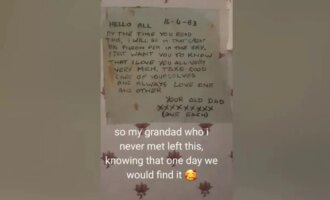 HELLO ALL 16-4-83
BY THE TIME YOU READ
THIS, I WILL BE IN THAT GREAT
BIG PIGEON PEN IN THE SKY,
I JUST WANT YOU TO KNOW
THAT I LOVE YOU ALL VERY
VERY MUCH, TAKE GOOD
CARE OF YOURSELVES
AND ALWAYS LOVE ONE
AND OTHER
YOUR OLD DAD
XXXXXXXXX
(ONE EACH)
so my grandad who i
never met left this,
knowing that one day we
would find it 🥰